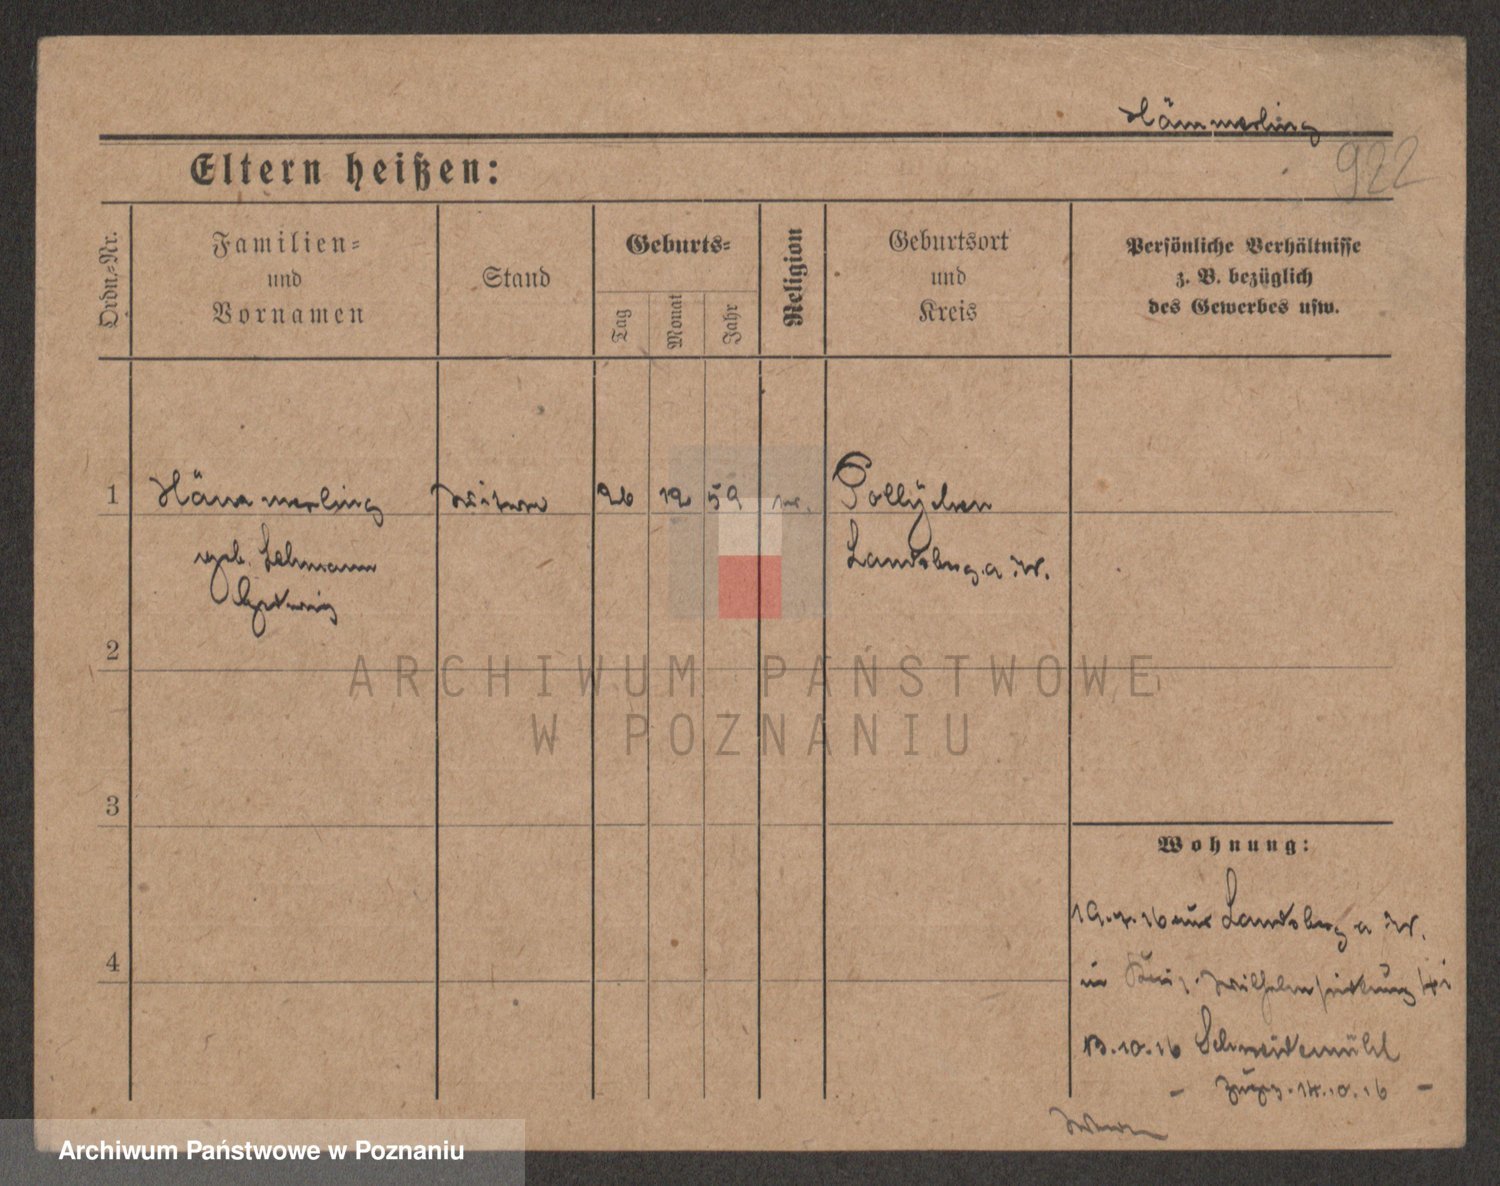 Hämmerling
922
Eltern heißen:
Ordn.-Nr.
Familien-
und
Vornamen
Stand
Geburts-
Tag
Monat
Jahr
Religion
Geburtsort
und
Kreis
Persönliche Verhältnisse
z. B. bezüglich
des Gewerbes usw.
1 Hämmerling Witwe 26 12 59 Pollychen
geb. Lehmann Landsberg a W.
Hedwig
2
ARCHIWUM PAŃSTWOWE
W POZNANIU
3
Wohnung:
19.7.16 aus Landsberg a W.
4
in
13.10.16 Schneidemühl
- 14.10.16 -
Archiwum Państwowe w Poznaniu